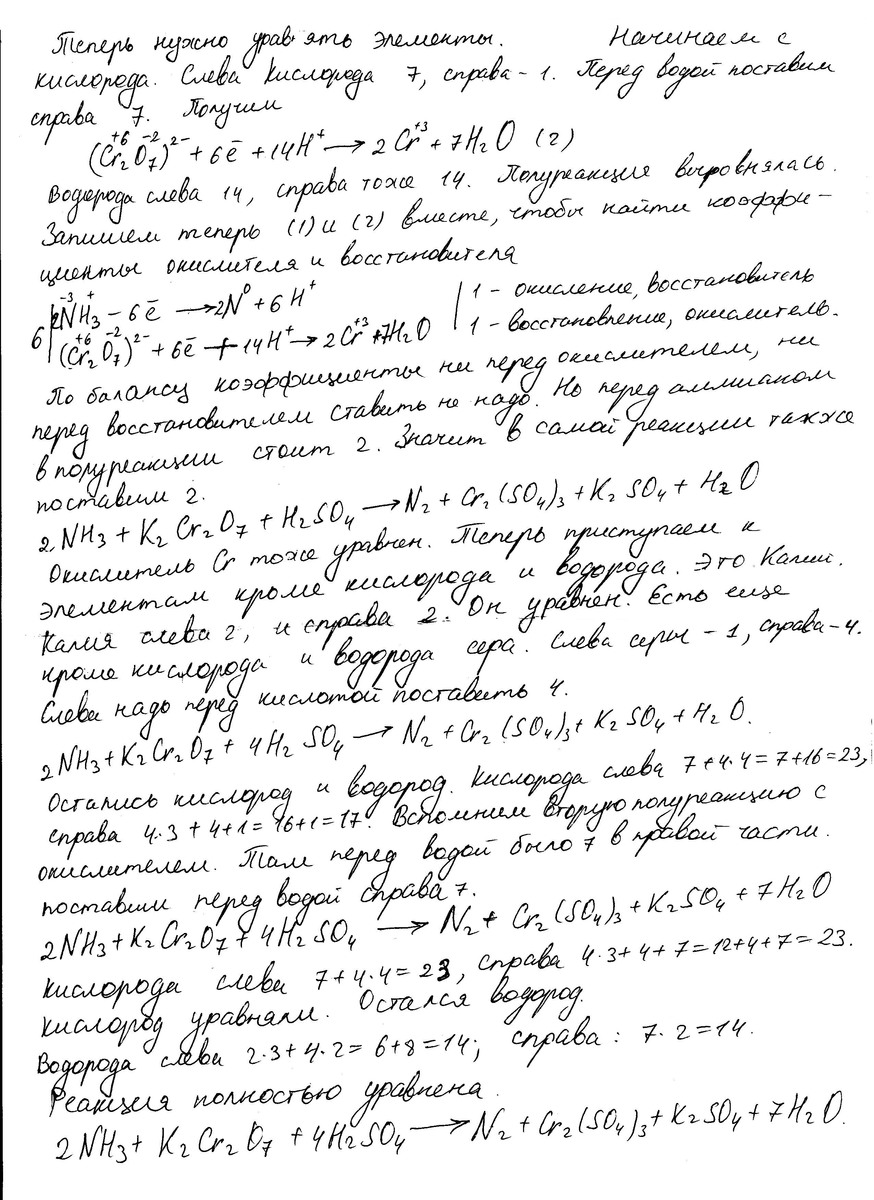 Теперь нужно уравнять элементы. Начинаем с
кислорода. Слева кислорода 7, справа - 1. Перед водой поставим
справа 7. Получим
(Cr₂⁺⁶O₇⁻²)²⁻ + 6ē + 14H⁺ → 2Cr⁺³ + 7H₂O (2)
Водорода слева 14, справа тоже 14. Полуреакция выровнялась.
Запишем теперь (1) и (2) вместе, чтобы найти коэффи-
циенты окислителя и восстановителя
2N⁻³H₃⁺ - 6ē → 2N⁰ + 6H⁺ | 1 - окисление, восстановитель
6 | (Cr₂⁺⁶O₇⁻²)²⁻ + 6ē + 14H⁺ → 2Cr⁺³ + 7H₂O | 1 - восстановление, окислитель.
По балансу коэффициенты ни перед окислителем, ни
перед восстановителем ставить не надо. Но перед аммиаком
в полуреакции стоит 2. Значит в самой реакции также
поставим 2.
2NH₃ + K₂Cr₂O₇ + H₂SO₄ → N₂ + Cr₂(SO₄)₃ + K₂SO₄ + H₂O
Окислитель Cr тоже уравнен. Теперь приступаем к
элементам кроме кислорода и водорода. Это Калий.
Калия слева 2, и справа 2. Он уравнен. Есть еще
кроме кислорода и водорода сера. Слева серы - 1, справа - 4.
Слева надо перед кислотой поставить 4.
2NH₃ + K₂Cr₂O₇ + 4H₂SO₄ → N₂ + Cr₂(SO₄)₃ + K₂SO₄ + H₂O.
Остались кислород и водород. Кислорода слева 7+4·4=7+16=23,
справа 4·3+4+1=16+1=17. Вспомним вторую полуреакцию с
окислителем. Там перед водой было 7 в правой части.
поставим перед водой справа 7.
2NH₃ + K₂Cr₂O₇ + 4H₂SO₄ → N₂ + Cr₂(SO₄)₃ + K₂SO₄ + 7H₂O
Кислорода слева 7+4·4=23, справа 4·3+4+7=12+4+7=23.
Кислород уравняли. Остался водород.
Водорода слева 2·3+4·2=6+8=14; справа: 7·2=14.
Реакция полностью уравнена.
2NH₃ + K₂Cr₂O₇ + 4H₂SO₄ → N₂ + Cr₂(SO₄)₃ + K₂SO₄ + 7H₂O.